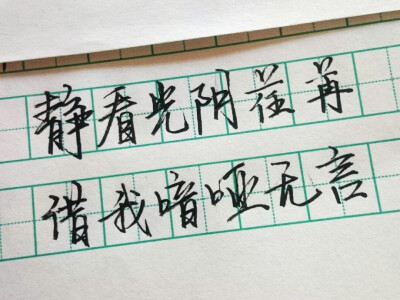 静看光阴荏苒
借我喑哑无言